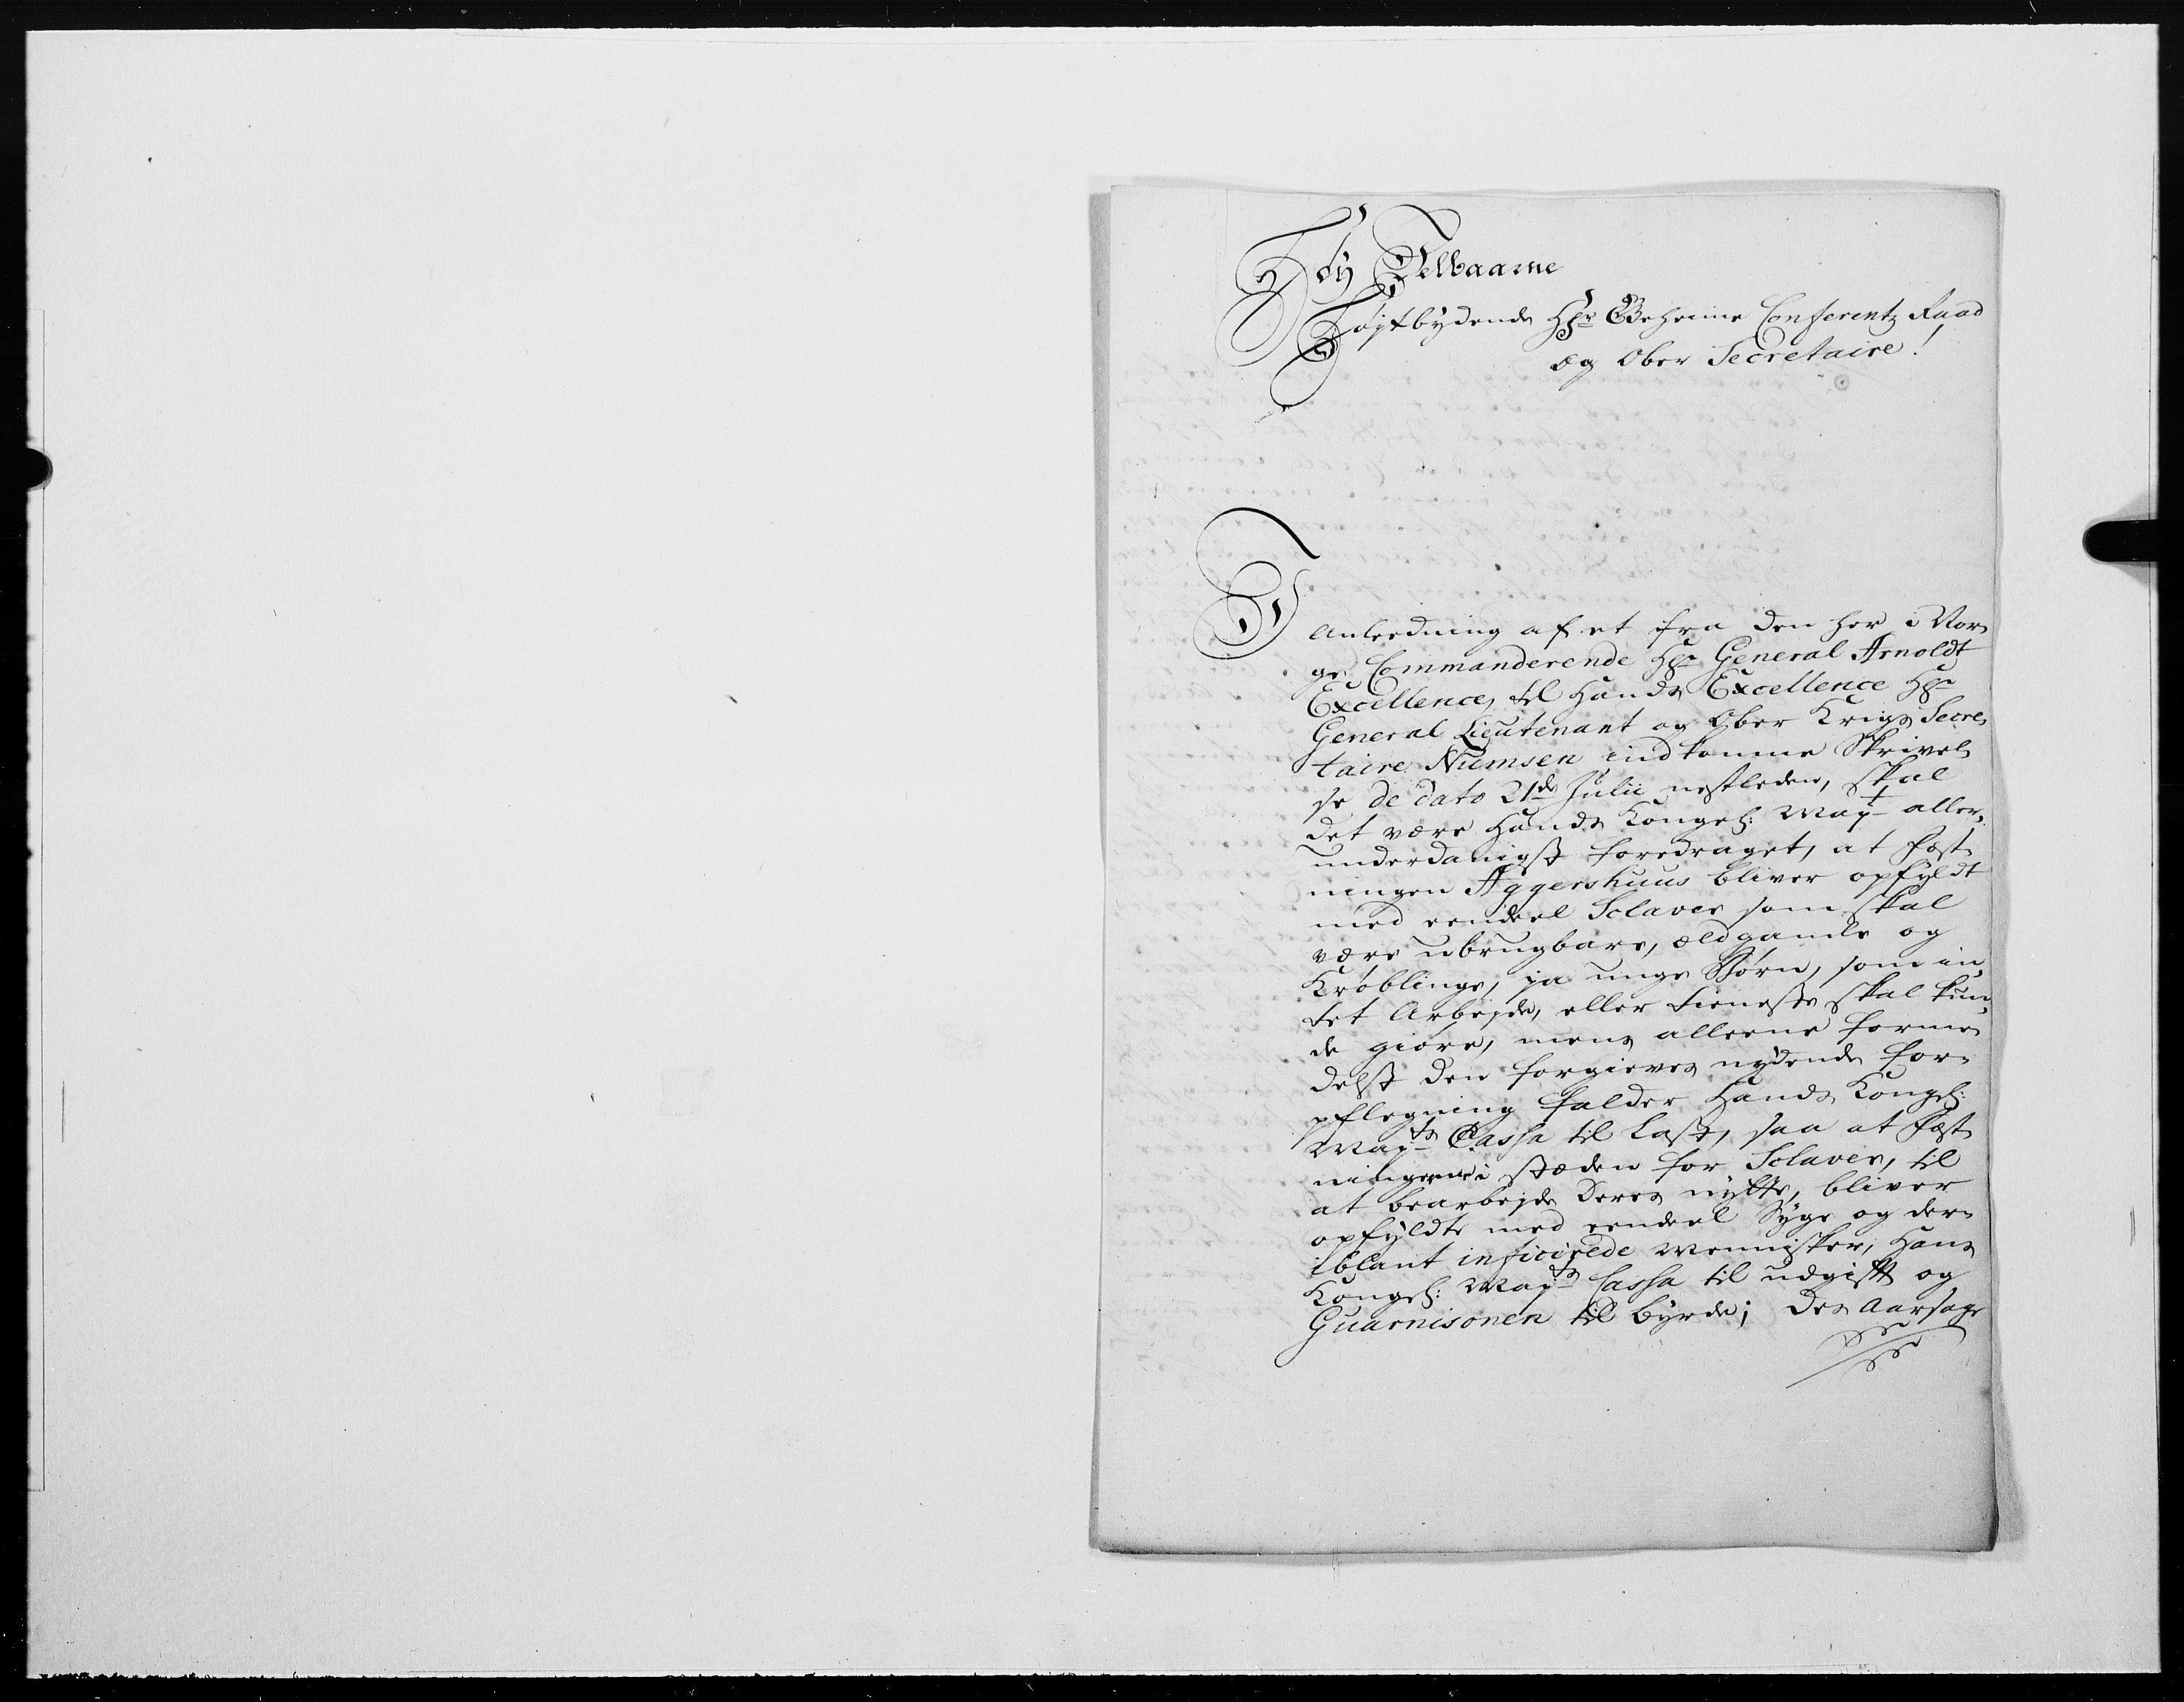 Høy Edelbaarne
Høytbydende Hr Geheime Conferentz Raad
og Ober Secretaire!
I
Anleedning af et fra den her i Nor,
ge Commanderende Hr General Arnoldt
Excellence, til Hands Excellence Hr
General Lieutenant og Ober Krigs Secre,
taire Numsen indkomme Skrivel,
se de dato 21de Julii nestleden, skal
det være Hands Kongel: Mayt aller,
underdanigst foredraget, at Fæst,
ningen Aggershuus bliver opfyldt
med eendeel Sclaver som skal
være ubrugbare, ældgamle og
Krøblinge, ja unge Børn, som in,
tet Arbejde, eller tieneste skal kun,
de giøre, mens alleene forme,
delst den forgieves nydende for,
pflegning falder Hands Kongel:
Mayts Cassa til Last, saa at Fæst,
ningerne i stæden for Sclaver, til
at bearbejde deres nytte, bliver
opfyldte med eendeel Syge og der,
iblant inficirede Mennisker, Hans
Kongel: Mayts Cassa til udgift og
Guarnisonen til byrde; Des Aarsage